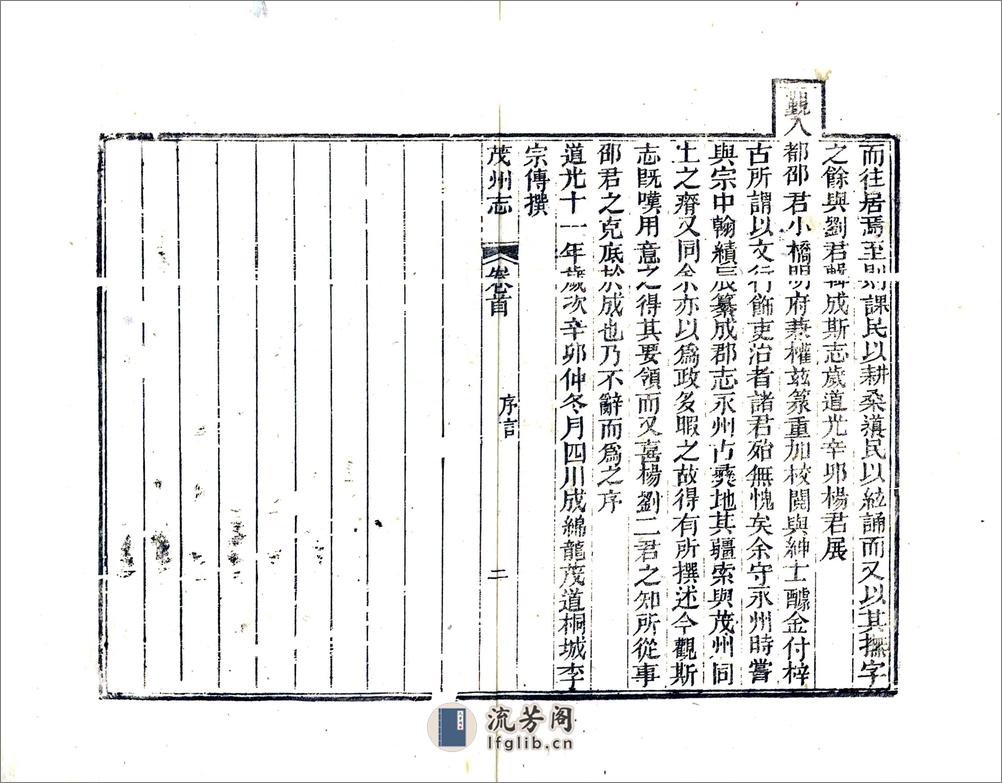 而往居焉至則課民以耕桑漢民以絃誦而又以其撫字
之餘與劉君輯成斯志歲道光辛卯楊君展
覲入
都邵君小橋明府兼權玆篆重加校閱與紳士醵金付梓
古所謂以文行飾吏治者諸君殆無愧矣余守永州時嘗
與宗中翰績辰纂成郡志永州古彝地其疆索與茂州同
土之瘠又同余亦以爲政多暇之故得有所撰述今觀斯
志旣嘆用意之得其要領而又喜楊劉二君之知所從事
邵君之克底於成也乃不辭而爲之序
道光十一年歲次辛卯仲冬月四川成綿龍茂道桐城李
宗傳撰
茂州志 卷首 序言 二
流芳阁
lfglib.cn